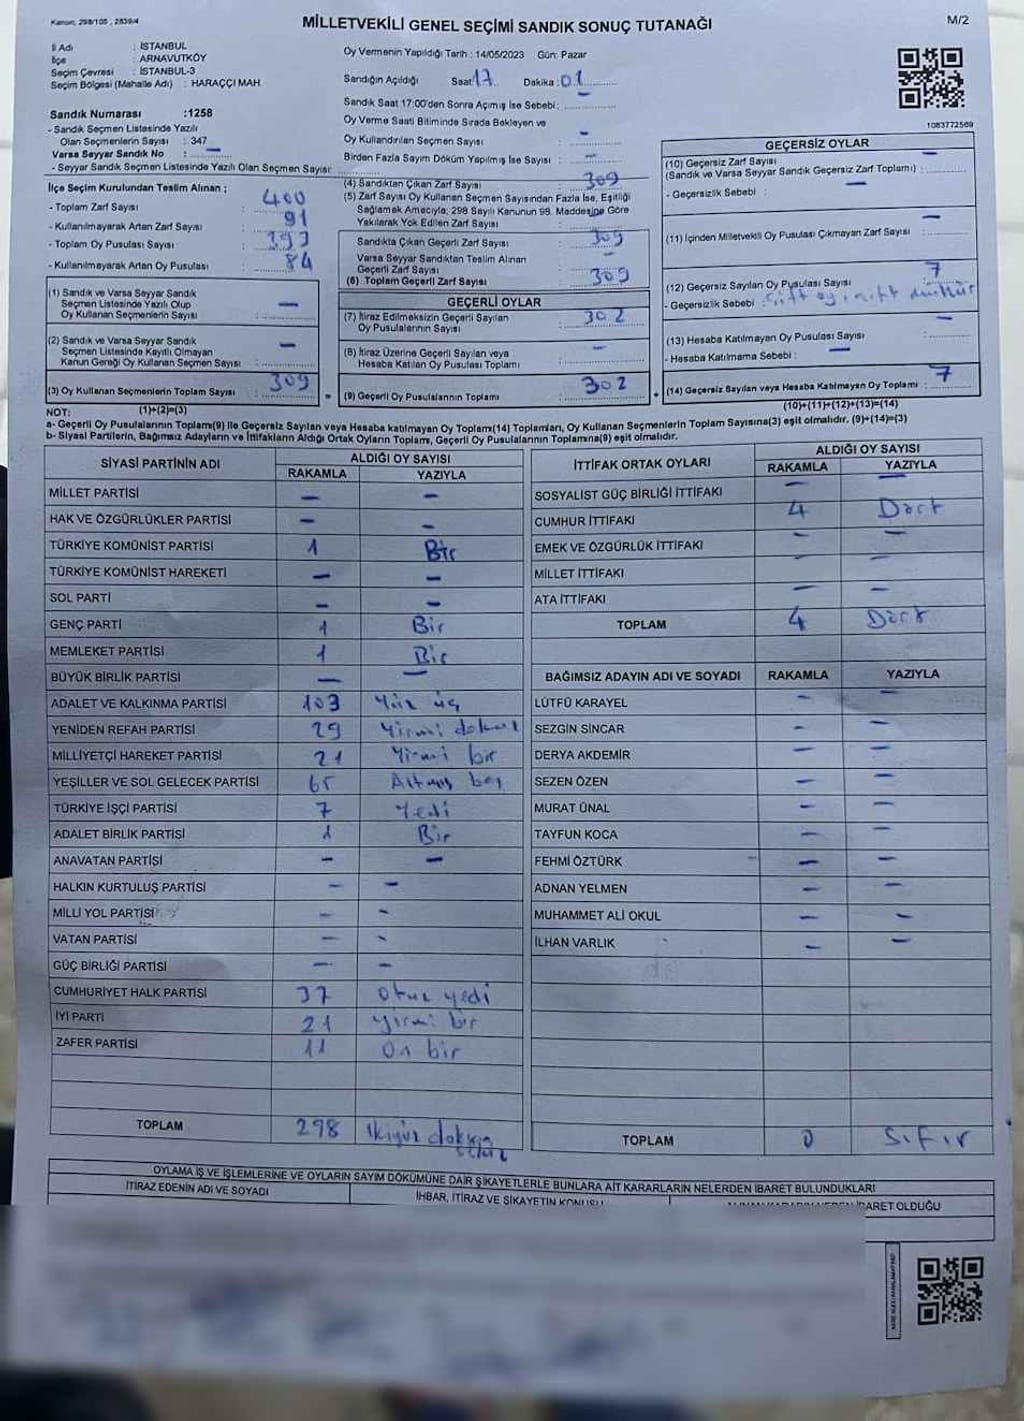 Kanun: 298/105, 2839/4
MİLLETVEKİLİ GENEL SEÇİMİ SANDIK SONUÇ TUTANAĞI
M/2
İl Adı : İSTANBUL
İlçe : ARNAVUTKÖY
Seçim Çevresi : İSTANBUL-3
Seçim Bölgesi (Mahalle Adı) : HARAÇÇI MAH.
Sandık Numarası :1258
- Sandık Seçmen Listesinde Yazılı
Olan Seçmenlerin Sayısı : 347
Varsa Seyyar Sandık No —
- Seyyar Sandık Seçmen Listesinde Yazılı Olan Seçmen Sayısı:
Oy Vermenin Yapıldığı Tarih : 14/05/2023 Gün: Pazar
Sandığın Açıldığı Saat 17 Dakika : 01
Sandık Saat 17:00'den Sonra Açımış İse Sebebi: —
Oy Verme Saati Bitiminde Sırada Bekleyen ve
Oy Kullandırılan Seçmen Sayısı : —
Birden Fazla Sayım Döküm Yapılmış İse Sayısı : —
1083772569
İlçe Seçim Kurulundan Teslim Alınan ;
- Toplam Zarf Sayısı : 400
- Kullanılmayarak Artan Zarf Sayısı : 91
- Toplam Oy Pusulası Sayısı : 393
- Kullanılmayarak Artan Oy Pusulası : 84
(1) Sandık ve Varsa Seyyar Sandık
Seçmen Listesinde Yazılı Olup
Oy Kullanan Seçmenlerin Sayısı : —
(2) Sandık ve Varsa Seyyar Sandık
Seçmen Listesinde Kayıtlı Olmayan
Kanun Gereği Oy Kullanan Seçmen Sayısı : —
(3) Oy Kullanan Seçmenlerin Toplam Sayısı : 309
(1)+(2)=(3)
(4) Sandıktan Çıkan Zarf Sayısı : 309
(5) Zarf Sayısı Oy Kullanan Seçmen Sayısından Fazla İse, Eşitliği
Sağlamak Amacıyla, 298 Sayılı Kanunun 98. Maddesine Göre
Yakılarak Yok Edilen Zarf Sayısı : —
Sandıkta Çıkan Geçerli Zarf Sayısı : 309
Varsa Seyyar Sandıktan Teslim Alınan
Geçerli Zarf Sayısı : —
(6) Toplam Geçerli Zarf Sayısı : 309
GEÇERLİ OYLAR
(7) İtiraz Edilmeksizin Geçerli Sayılan
Oy Pusulalarının Sayısı : 302
(8) İtiraz Üzerine Geçerli Sayılan veya
Hesaba Katılan Oy Pusulası Toplamı : —
(9) Geçerli Oy Pusulalarının Toplamı : 302
GEÇERSİZ OYLAR
(10) Geçersiz Zarf Sayısı
(Sandık ve Varsa Seyyar Sandık Geçersiz Zarf Toplamı) : —
- Geçersizlik Sebebi : —
(11) İçinden Milletvekili Oy Pusulası Çıkmayan Zarf Sayısı : —
(12) Geçersiz Sayılan Oy Pusulası Sayısı : 7
- Geçersizlik Sebebi : çift oy çift mühür
(13) Hesaba Katılmayan Oy Pusulası Sayısı : —
- Hesaba Katılmama Sebebi : —
(14) Geçersiz Sayılan veya Hesaba Katılmayan Oy Toplamı : 7
(10)+(11)+(12)+(13)=(14)
NOT:
a- Geçerli Oy Pusulalarının Toplamı(9) ile Geçersiz Sayılan veya Hesaba katılmayan Oy Toplam(14) Toplamları, Oy Kullanan Seçmenlerin Toplam Sayısına(3) eşit olmalıdır. (9)+(14)=(3)
b- Siyasi Partilerin, Bağımsız Adayların ve İttifakların Aldığı Ortak Oyların Toplamı, Geçerli Oy Pusulalarının Toplamına(9) eşit olmalıdır.
SİYASİ PARTİNİN ADI ALDIĞI OY SAYISI
RAKAMLA YAZIYLA
MİLLET PARTİSİ — —
HAK VE ÖZGÜRLÜKLER PARTİSİ — —
TÜRKİYE KOMÜNİST PARTİSİ 1 Bir
TÜRKİYE KOMÜNİST HAREKETİ — —
SOL PARTİ — —
GENÇ PARTİ 1 Bir
MEMLEKET PARTİSİ 1 Bir
BÜYÜK BİRLİK PARTİSİ — —
ADALET VE KALKINMA PARTİSİ 103 Yüz üç
YENİDEN REFAH PARTİSİ 29 Yirmi dokuz
MİLLİYETÇİ HAREKET PARTİSİ 21 Yirmi bir
YEŞİLLER VE SOL GELECEK PARTİSİ 65 Altmış beş
TÜRKİYE İŞÇİ PARTİSİ 7 Yedi
ADALET BİRLİK PARTİSİ 1 Bir
ANAVATAN PARTİSİ — —
HALKIN KURTULUŞ PARTİSİ — —
MİLLİ YOL PARTİSİ — —
VATAN PARTİSİ — —
GÜÇ BİRLİĞİ PARTİSİ — —
CUMHURİYET HALK PARTİSİ 37 Otuz yedi
İYİ PARTİ 21 yirmi bir
ZAFER PARTİSİ 11 On bir
TOPLAM 298 ikiyüz doksan sekiz
İTTİFAK ORTAK OYLARI ALDIĞI OY SAYISI
RAKAMLA YAZIYLA
SOSYALİST GÜÇ BİRLİĞİ İTTİFAKI — —
CUMHUR İTTİFAKI 4 Dört
EMEK VE ÖZGÜRLÜK İTTİFAKI — —
MİLLET İTTİFAKI — —
ATA İTTİFAKI — —
TOPLAM 4 Dört
BAĞIMSIZ ADAYIN ADI VE SOYADI RAKAMLA YAZIYLA
LÜTFÜ KARAYEL — —
SEZGİN SİNCAR — —
DERYA AKDEMİR — —
SEZEN ÖZEN — —
MURAT ÜNAL — —
TAYFUN KOCA — —
FEHMİ ÖZTÜRK — —
ADNAN YELMEN — —
MUHAMMET ALİ OKUL — —
İLHAN VARLIK — —
TOPLAM 0 Sıfır
OYLAMA İŞ VE İŞLEMLERİNE VE OYLARIN SAYIM DÖKÜMÜNE DAİR ŞİKAYETLERLE BUNLARA AİT KARARLARIN NELERDEN İBARET BULUNDUKLARI
İTİRAZ EDENİN ADI VE SOYADI İHBAR, İTİRAZ VE ŞİKAYETİN KONUSU İBARET OLDUĞU